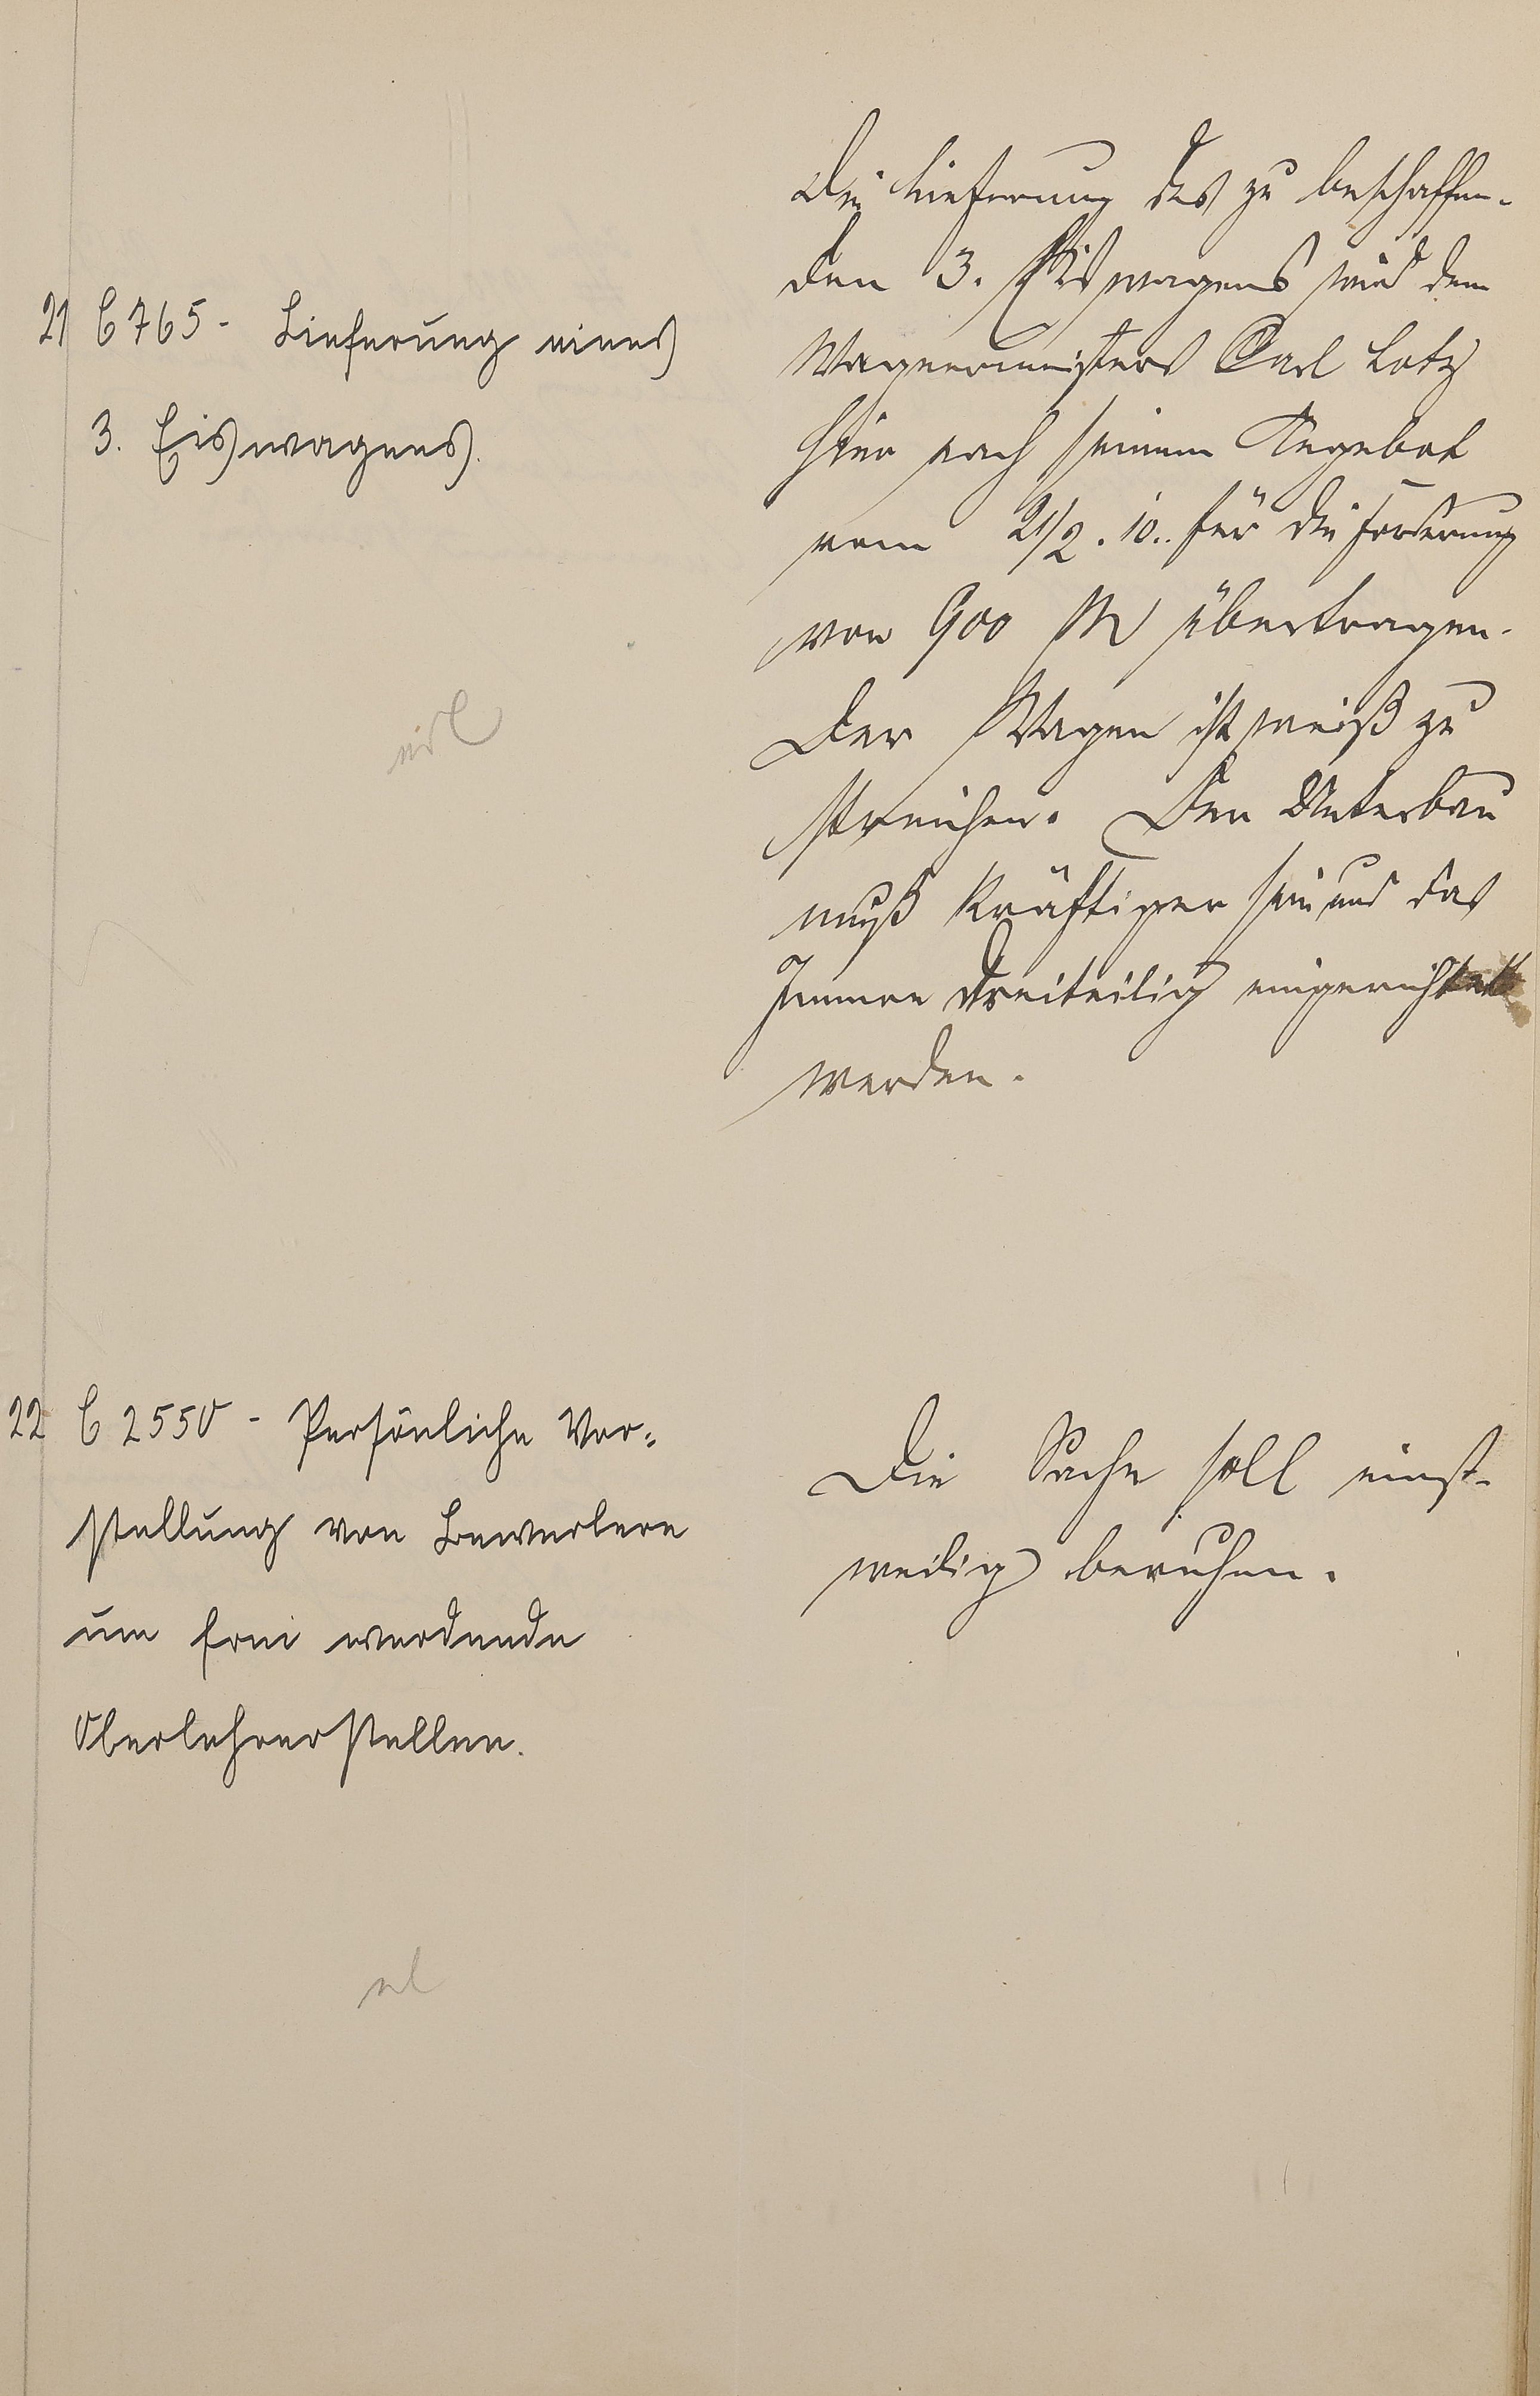 21 C 765 - Lieferung eines
3. Eiswagens.
Die Lieferung des zu beschaffen-
den 3. Eiswagens wird dem
Wagnermeister Carl Lotz
hier nach seinem Angebot
vom 21/2. 10.. für die Forderung
von 900 M übertragen.
Der Wagen ist weiß zu
streichen. Der Unterbau
muß kräftiger sein und das
Innere dreiteilig eingerichtet
werden.
22 C 2550 - Persönliche Vor-
stellung von Bewerbern
um frei werdende
Oberlehrerstellen.
Die Sache soll einst-
weilig beruhen.